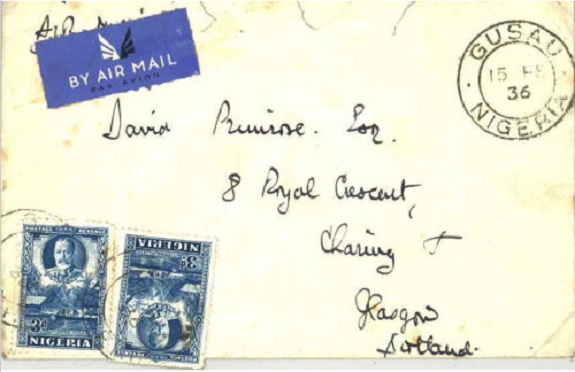 Air Mail
BY AIR MAIL
PAR AVION
GUSAU
15 FE
36
NIGERIA
David Primrose. Esq.
8 Royal Crescent,
Charing +
Glasgow
Scotland.
POSTAGE & REVENUE
3d
NIGERIA
POSTAGE & REVENUE
3d
NIGERIA